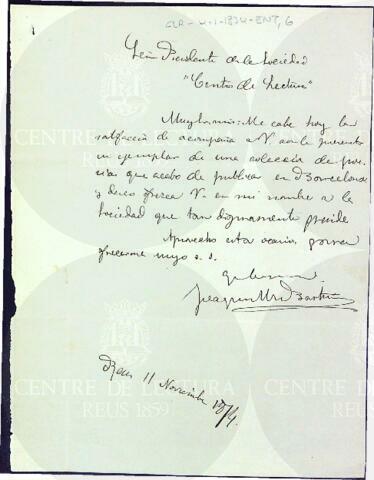 CLR-4-1-1874-ENT, 6
Señor Presidente de la Sociedad
"Centro de Lectura"
Muy Sr. mio: Me cabe hoy la
satisfacción de acompañar a V. con la presente
un ejemplar de una colección de poe-
sias que acabo de publicar en Barcelona
y deseo ofrezca V. en mi nombre a la
Sociedad que tan dignamente preside
Aprovecho esta ocasion para
ofrecerme suyo s. s.
q. b. s. m.
Joaquin Mª Bartrina
Reus 11 Noviembre 1874.
CENTRE DE LECTURA
REUS 1859